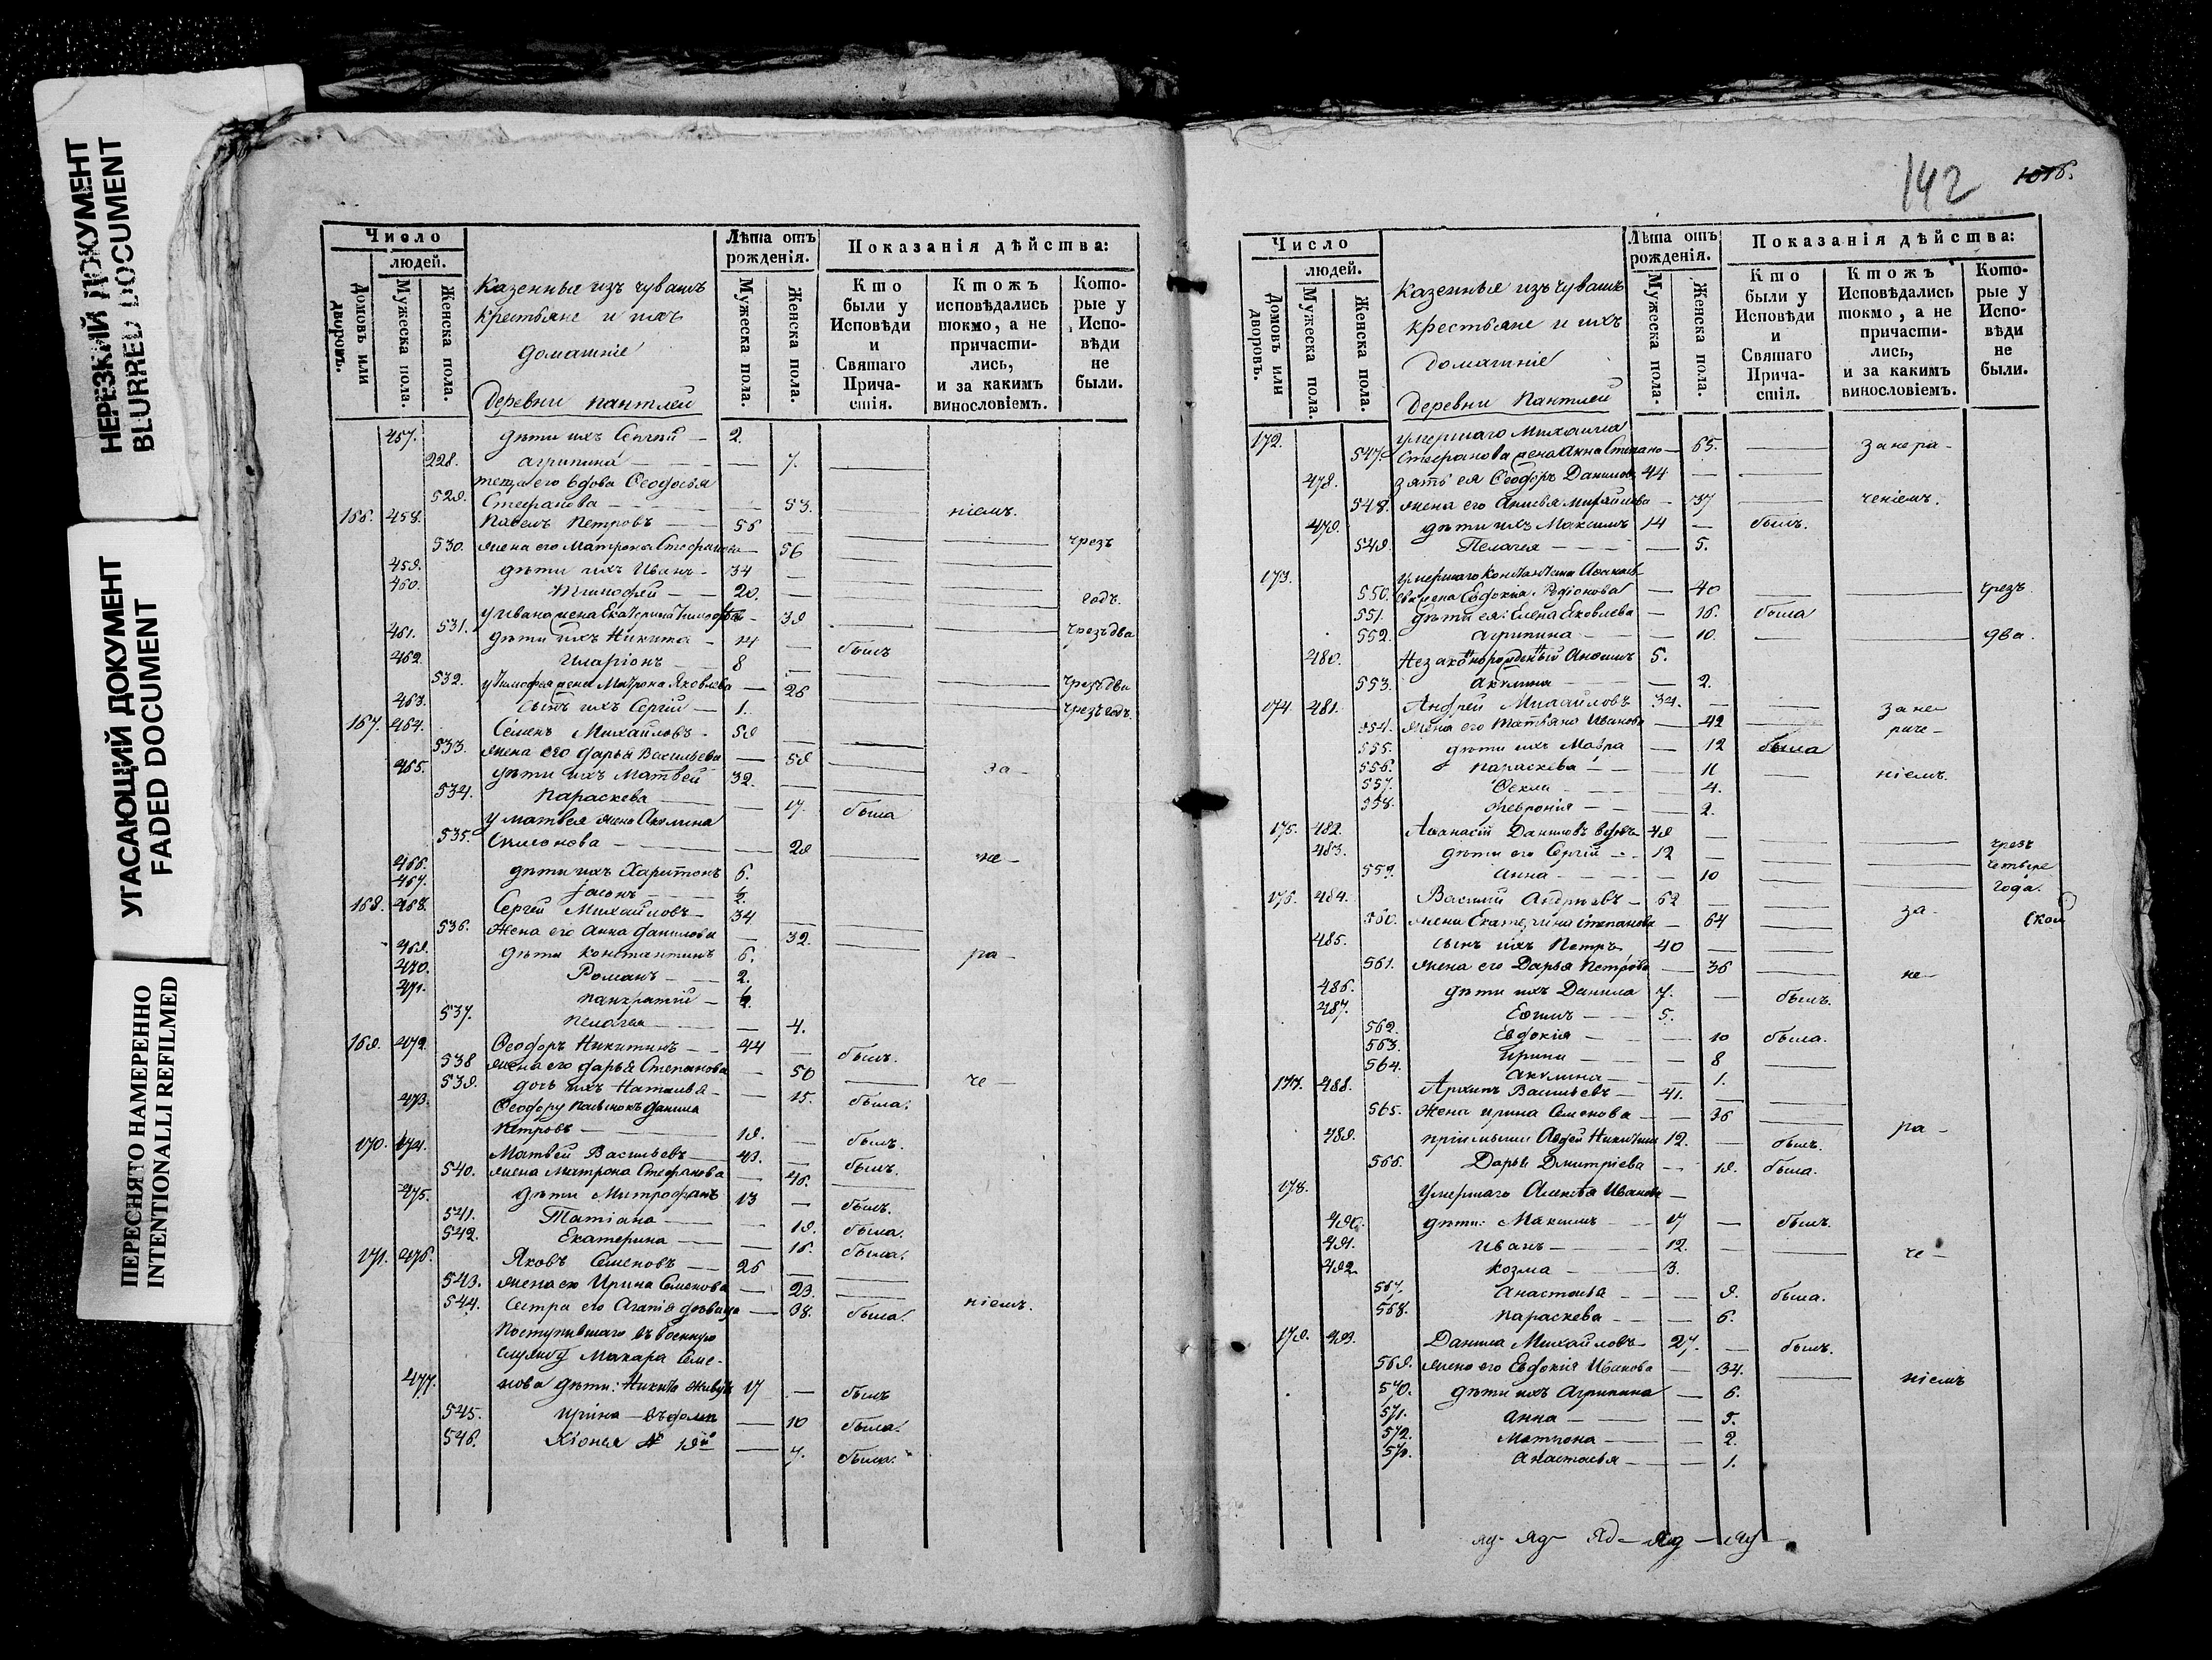 НЕРЕЗКИЙ ДОКУМЕНТ
BLURRED DOCUMENT
УГАСАЮЩИЙ ДОКУМЕНТ
FADED DOCUMENT
ПЕРЕСНЯТО НАМЕРЕННО
INTENTIONALLI REFILMED
Число
людей.
Домовъ или дворовъ.
Мужеска пола.
Женска пола.
Казенные изъ чувашъ
крестьяне и ихъ
домашніе
Деревни Пантлей
Лѣта отъ рожденія.
Мужеска пола.
Женска пола.
Показанія дѣйства:
Кто были у Исповѣди и Святаго Причастія.
Ктожъ исповѣдались токмо, а не причастились, и за какимъ винословіемъ.
Которые у Исповѣди не были.
457. дѣти ихъ Сергѣй — 2.
228. Агрипина — 7.
теща его вдова Ѳеодосья
529. Стефанова — 53. ніемъ.
166. 458. Павелъ Петровъ — 56
530. жена его Матрона Стефанова — 56 чрезъ
459. дѣти ихъ Иванъ — 34
460. Тимофей — 20. годъ.
531. у Ивана жена Екатерина Тимофѣева — 39 чрезъ два
461. дѣти ихъ Никита — 14 — былъ
462. Иларіонъ 8
532. у Тимофея жена Матрона Яковлева — 26 чрезъ два
463. сынъ ихъ Сергій — 1. чрезъ годъ.
167. 464. Семенъ Михайловъ — 59
533. жена его Дарья Васильева — 59
465. дѣти ихъ Матвей 32. за-
534. Параскева — 17. была
у Матвея жена Акулина
535. Симонова — 29 не-
466. дѣти ихъ Харитонъ 6.
467. Іасонъ — ½.
168. 468. Сергей Михайловъ — 34
536. Жена его Анна Данилова — 32.
469. дѣти Константинъ 6. ра-
470. Романъ — 2.
471. Панкратій — ½
537. Пелагея — 4.
169. 472. Ѳеодоръ Никитинъ — 44 — былъ.
538 жена его Дарья Степанова — 50
539. дочь ихъ Наталья — 15. была. че
473. Ѳеодору пасынокъ Данила
Петровъ — 19. — былъ.
170. 474. Матвей Васильевъ — 43. — былъ.
540. жена Матрона Стефанова — 46.
475. дѣти Митрофанъ 13 — былъ.
541. Татіана — 19. была.
542. Екатерина — 16. была.
171. 476. Яковъ Семеновъ — 26
543. жена ею Ирина Семенова — 23.
544. Сестра его Агапія дѣвица — 38. была. ніемъ.
Поступившаго въ военную
службу Макара Семе-
477. нова дѣти: Никита живутъ 17 — былъ
545. Ирина — въ домѣ — 10 была.
546. Хіонья № 19й — 7. была.
142
101б.
Число
людей.
Домовъ или дворовъ.
Мужеска пола.
Женска пола.
Казенные изъ чувашъ
крестьяне и ихъ
домашніе
Деревни Пантлей
Лѣта отъ рожденія.
Мужеска пола.
Женска пола.
Показанія дѣйства:
Кто были у Исповѣди и Святаго Причастія.
Ктожъ Исповѣдались токмо, а не причастились, и за какимъ винословіемъ.
Которые у Исповѣди не были.
172. умершаго Михаила
547. Стефанова жена Анна Степано — 65. занера-
478. зять ея Ѳеодоръ Даниловъ 44
548. жена его Анисья Михайлова — 37 ченіемъ.
479. дѣти ихъ Максимъ 14 — былъ.
549. Пелагея — 5.
173. умершаго Константина
550. жена Евдокиа Родіонова — 40 чрезъ
551. дѣти ея: Елена Яковлева — 16. была
552. Агрипина — 10. два.
480. Незаконорожденный 5.
553. Акулина — 2.
174. 481. Андрей Михайловъ 34. — зане-
554. жена его Татьяна Иванова — 42 раче-
555. дѣти ихъ Мавра — 12 была
556. Параскева — 11 ніемъ.
557. Ѳекла — 4.
558. Февронія — 2.
175. 482. Аѳанасій Даниловъ вдовъ 49 —
483. дѣти его Сергій — 12 чрезъ
559. Анна — 10 четыре
176. 484. Василій Андреевъ — 62 года.
560. жена Екатерина Степанова — 64 за-
485. сынъ ихъ Петръ 40 —
561. жена его Дарья Петрова — 36 не-
486. дѣти ихъ Данила 7. — былъ.
487. Ефимъ — 5.
562. Евдокія — 10 была.
563. Ирина — 8
564. Акулина — 1.
177. 488. Архипъ Васильевъ — 41.
565. Жена Ирина Семенова — 36
489. пріимыши Авдей Никитинъ 12. — былъ. ра-
566. Дарья Дмитріева — 19. была.
178. Умершаго Алексѣя Иванова —
490. дѣти: Максимъ — 17 — былъ.
491. Иванъ — 12. че-
492 Козма — 3.
567. Анастасья — 9. была.
568. Параскева — 6.
179. 493. Данила Михайловъ — 27. — былъ.
569. жена его Евдокія Иванова — 34. ніемъ
570. дѣти ихъ Агрипина — 6.
571. Анна — 5.
572. Матрона — 2.
573. Анастасья — 1.